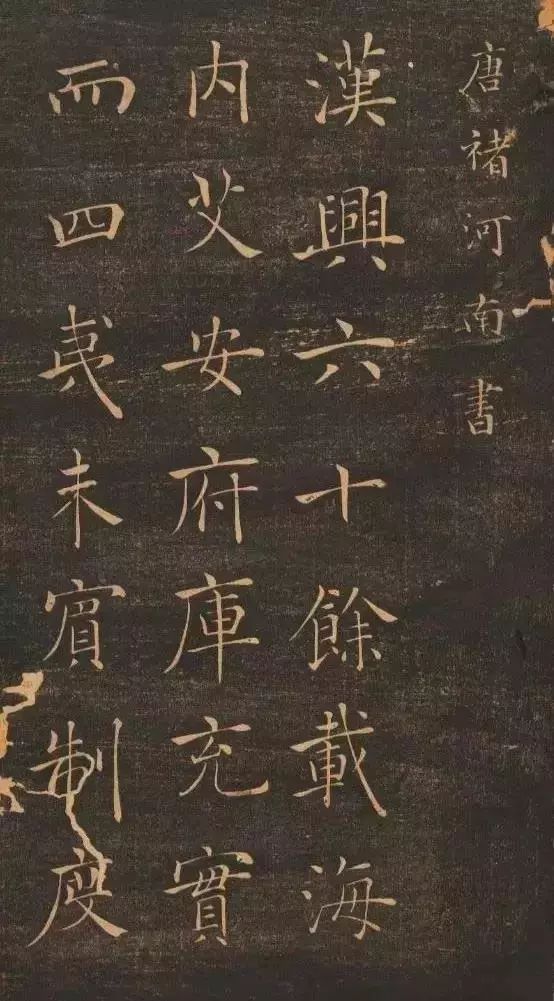 唐褚河南書
漢興六十餘載海
内艾安府庫充實
而四夷未賓制度